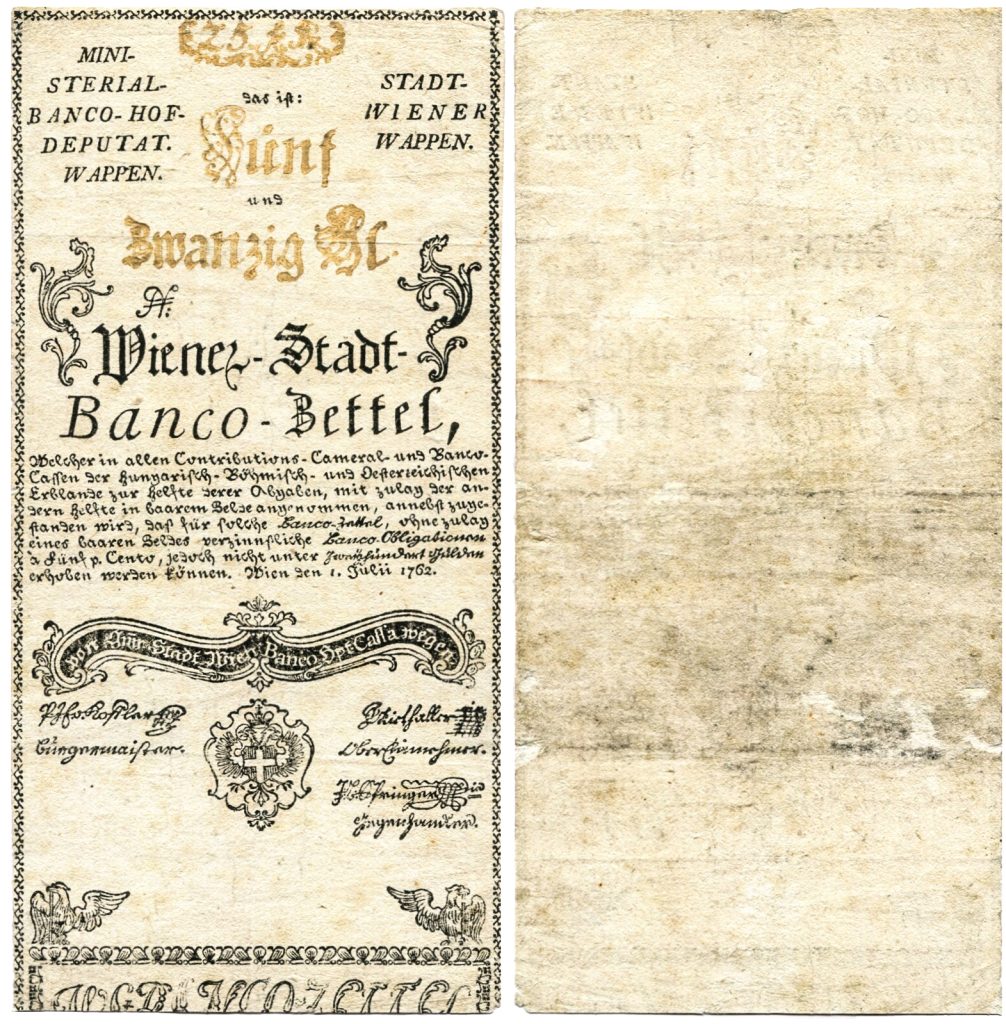 25 fl
MINI-
STERIAL-
BANCO-HOF-
DEPUTAT.
WAPPEN.
STADT-
WIENER
WAPPEN.
das ist:
Fünf
und
Zwanzig Gl.
N:
Wiener-Stadt-
Banco-Zettel,
Welcher in allen Contributions-Cameral- und Banco-
Cassen der Hungarisch-Böhmisch- und Oesterreichischen
Erblande zur Helfte derer Abgaben, mit zulag der an-
dern Helfte in baarem Gelde angenommen, annebst zuge-
standen wird, daß für solche Banco-Zettel, ohne zulag
eines baaren Geldes verzinnsliche Banco-Obligationen
a Fünf p. Cento, jedoch nicht unter Zweyhundert Gulden
erhoben werden können. Wien den 1. Julii 1762.
von der Stadt Wien Banco Cassa wegen
Bürgermaister.
Ober Einnehmer.
Springer
Gegenhandler.